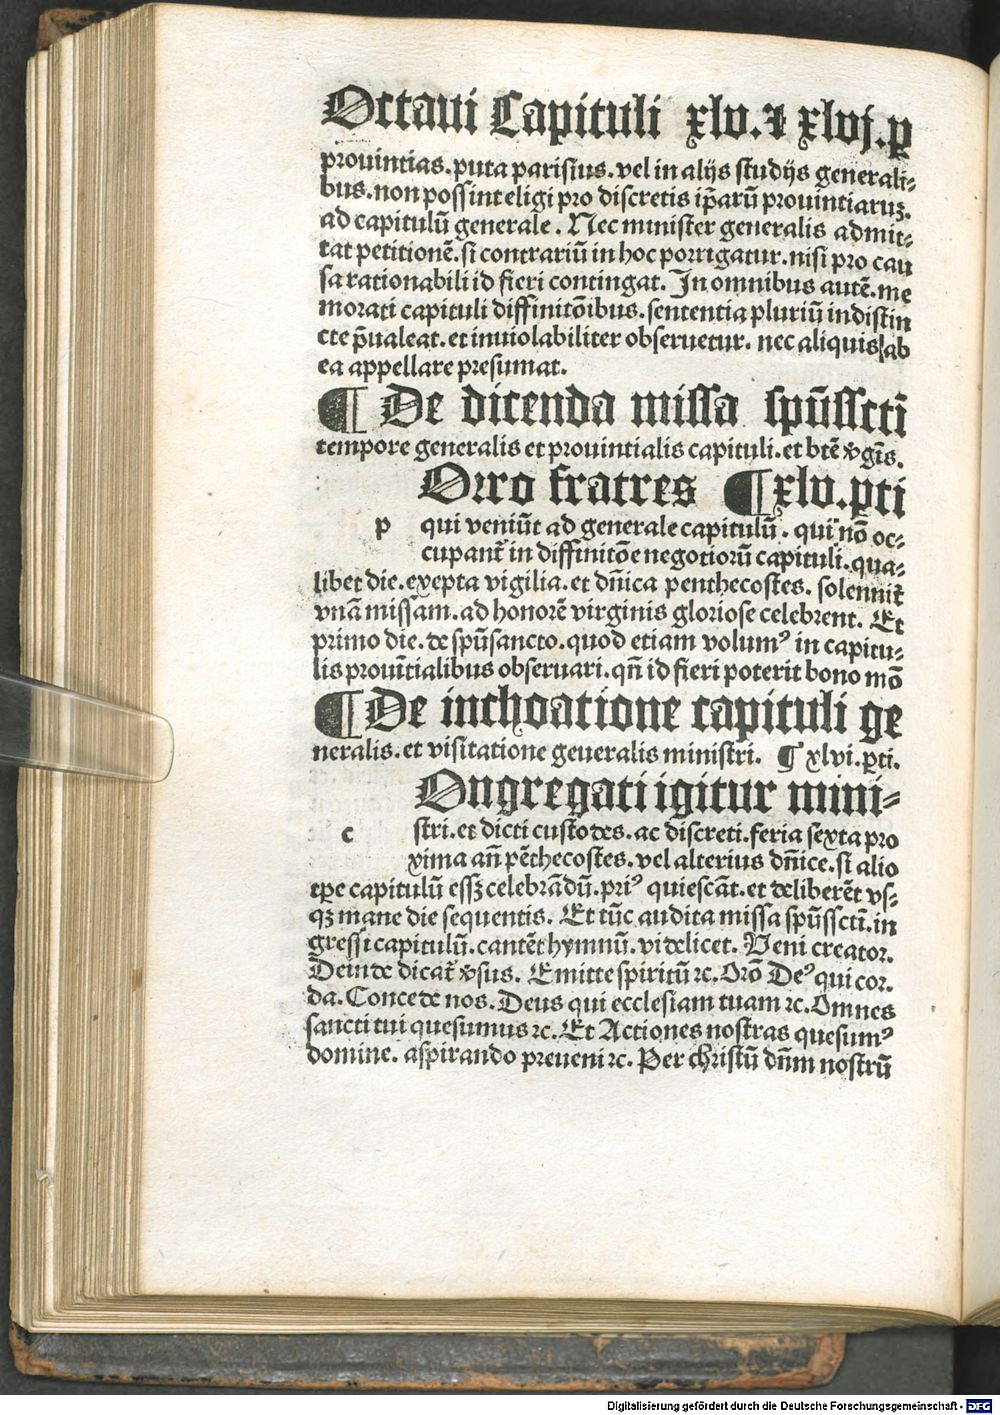 Octaui Capituli xlv. ⁊ xlvj. ꝑ
prouintias. puta parisius. vel in alijs studijs generali-
bus. non possint eligi pro discretis ip̄arū prouintiaruꝫ.
ad capitulū generale. Nec minister generalis admit-
tat petitionē. si contrariū in hoc porrigatur. nisi pro cau
sa rationabili id fieri contingat. In omnibus autē. me
morati capituli diffinitōibus. sententia pluriū indistin
cte p̄ualeat. et inuiolabiliter obseruetur. nec aliquis ab
ea appellare presumat.
¶ De dicenda missa spūssctī
tempore generalis et prouintialis capituli. et btē v̄gīs.
Orro fratres ¶ xlv. ꝑti
p qui veniūt ad generale capitulū. qui nō oc-
cupant̄ in diffinitōe negotiorū capituli. qua-
libet die. exepta vigilia. et dn̄ica penthecostes. solennit̄
vnā missam. ad honorē virginis gloriose celebrent. Et
primo die. de spūsancto. quod etiam volumꝰ in capitu-
lis prouītialibus obseruari. qn̄ id fieri poterit bono mō
¶ De inchoatione capituli ge
neralis. et visitatione generalis ministri. ¶ xlvi. ꝑti.
Ongregati igitur mini-
c stri. et dicti custodes. ac discreti. feria sexta pro
xima an̄ pētthecostes. vel alterius dn̄ice. si alio
tꝑe capitulū essꝫ celebrādū. priꝰ quiescāt. et deliberēt vs-
qꝫ mane die sequentis. Et tūc audita missa spūssctī. in
gressi capitulū. cantēt hymnū. videlicet. Veni creator.
Deinde dicat̄ v̄sus. Emitte spiritū ⁊c. Orō Deꝰ qui cor.
da. Concede nos. Deus qui ecclesiam tuam ⁊c. Omnes
sancti tui quesumus ⁊c. Et Actiones nostras quesumꝰ
domine. aspirando preueni ⁊c. Per christū dn̄m nostrū
Digitalisierung gefördert durch die Deutsche Forschungsgemeinschaft - DFG